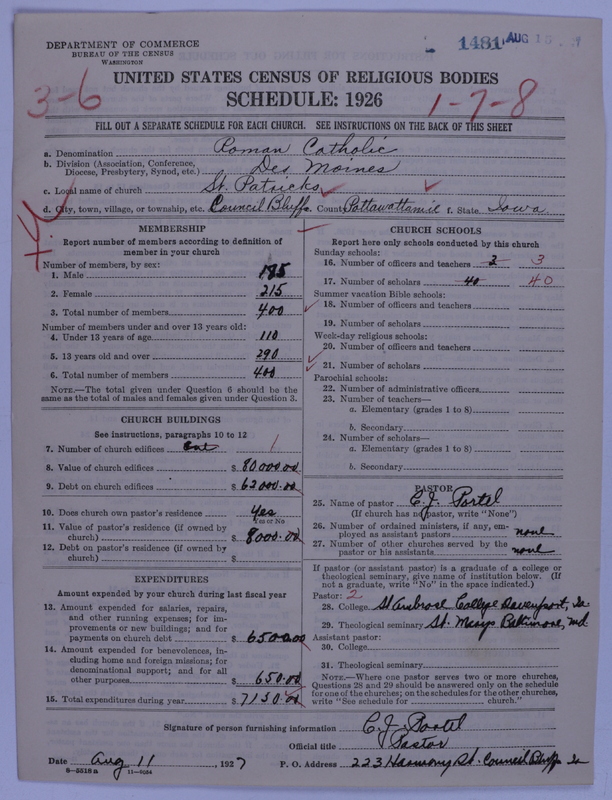 DEPARTMENT OF COMMERCE
BUREAU OF THE CENSUS
WASHINGTON
1481 AUG 15
UNITED STATES CENSUS OF RELIGIOUS BODIES
SCHEDULE: 1926
3-6
1-7-8
FILL OUT A SEPARATE SCHEDULE FOR EACH CHURCH. SEE INSTRUCTIONS ON THE BACK OF THIS SHEET
a. Denomination Roman Catholic
b. Division (Association, Conference, Diocese, Presbytery, Synod, etc.) Des Moines
c. Local name of church St. Patricks
d. City, town, village, or township, etc. Council Bluffs County Pottawattamie f. State Iowa
MEMBERSHIP
Report number of members according to definition of
member in your church
Number of members, by sex:
1. Male 185
2. Female 215
3. Total number of members 400
Number of members under and over 13 years old:
4. Under 13 years of age 110
5. 13 years old and over 290
6. Total number of members 400
NOTE.—The total given under Question 6 should be
same as the total of males and females given under Question 3.
CHURCH BUILDINGS
See instructions, paragraphs 10 to 12
7. Number of church edifices one 1
8. Value of church edifices $ 80000.00
9. Debt on church edifices $ 62000.00
10. Does church own pastor's residence yes
Yes or No
11. Value of pastor's residence (if owned by
church) $ 8000.00
12. Debt on pastor's residence (if owned by
church) $
EXPENDITURES
Amount expended by your church during last fiscal year
13. Amount expended for salaries, repairs,
and other running expenses; for im-
provements or new buildings; and for
payments on church debt $ 6500.00
14. Amount expended for benevolences, in-
cluding home and foreign missions; for
denominational support; and for all
other purposes $ 650.00
15. Total expenditures during year $ 7150.00
CHURCH SCHOOLS
Report here only schools conducted by this church
Sunday schools:
16. Number of officers and teachers 3 3
17. Number of scholars 40 40
Summer vacation Bible schools:
18. Number of officers and teachers
19. Number of scholars
Week-day religious schools:
20. Number of officers and teachers
21. Number of scholars
Parochial schools:
22. Number of administrative officers
23. Number of teachers—
a. Elementary (grades 1 to 8)
b. Secondary
24. Number of scholars—
a. Elementary (grades 1 to 8)
b. Secondary
PASTOR
25. Name of pastor C. J. Portel
(If church has no pastor, write "None")
26. Number of ordained ministers, if any, em-
ployed as assistant pastors none
27. Number of other churches served by the
pastor or his assistants none
If pastor (or assistant pastor) is a graduate of a college or
theological seminary, give name of institution below. (If
not a graduate, write "No" in the space indicated.)
Pastor: 2
28. College St Ambrose College Davenport, Ia
29. Theological seminary St. Marys Baltimore, Md
Assistant pastor:
30. College
31. Theological seminary
NOTE.—Where one pastor serves two or more churches,
Questions 28 and 29 should be answered only on the schedule
for one of the churches; on the schedules for the other churches,
write "See schedule for church."
Signature of person furnishing information C. J. Portel
Official title Pastor
Date Aug 11, 1927 P. O. Address 223 Harmony St. Council Bluffs Ia
8-5518a 11-8054